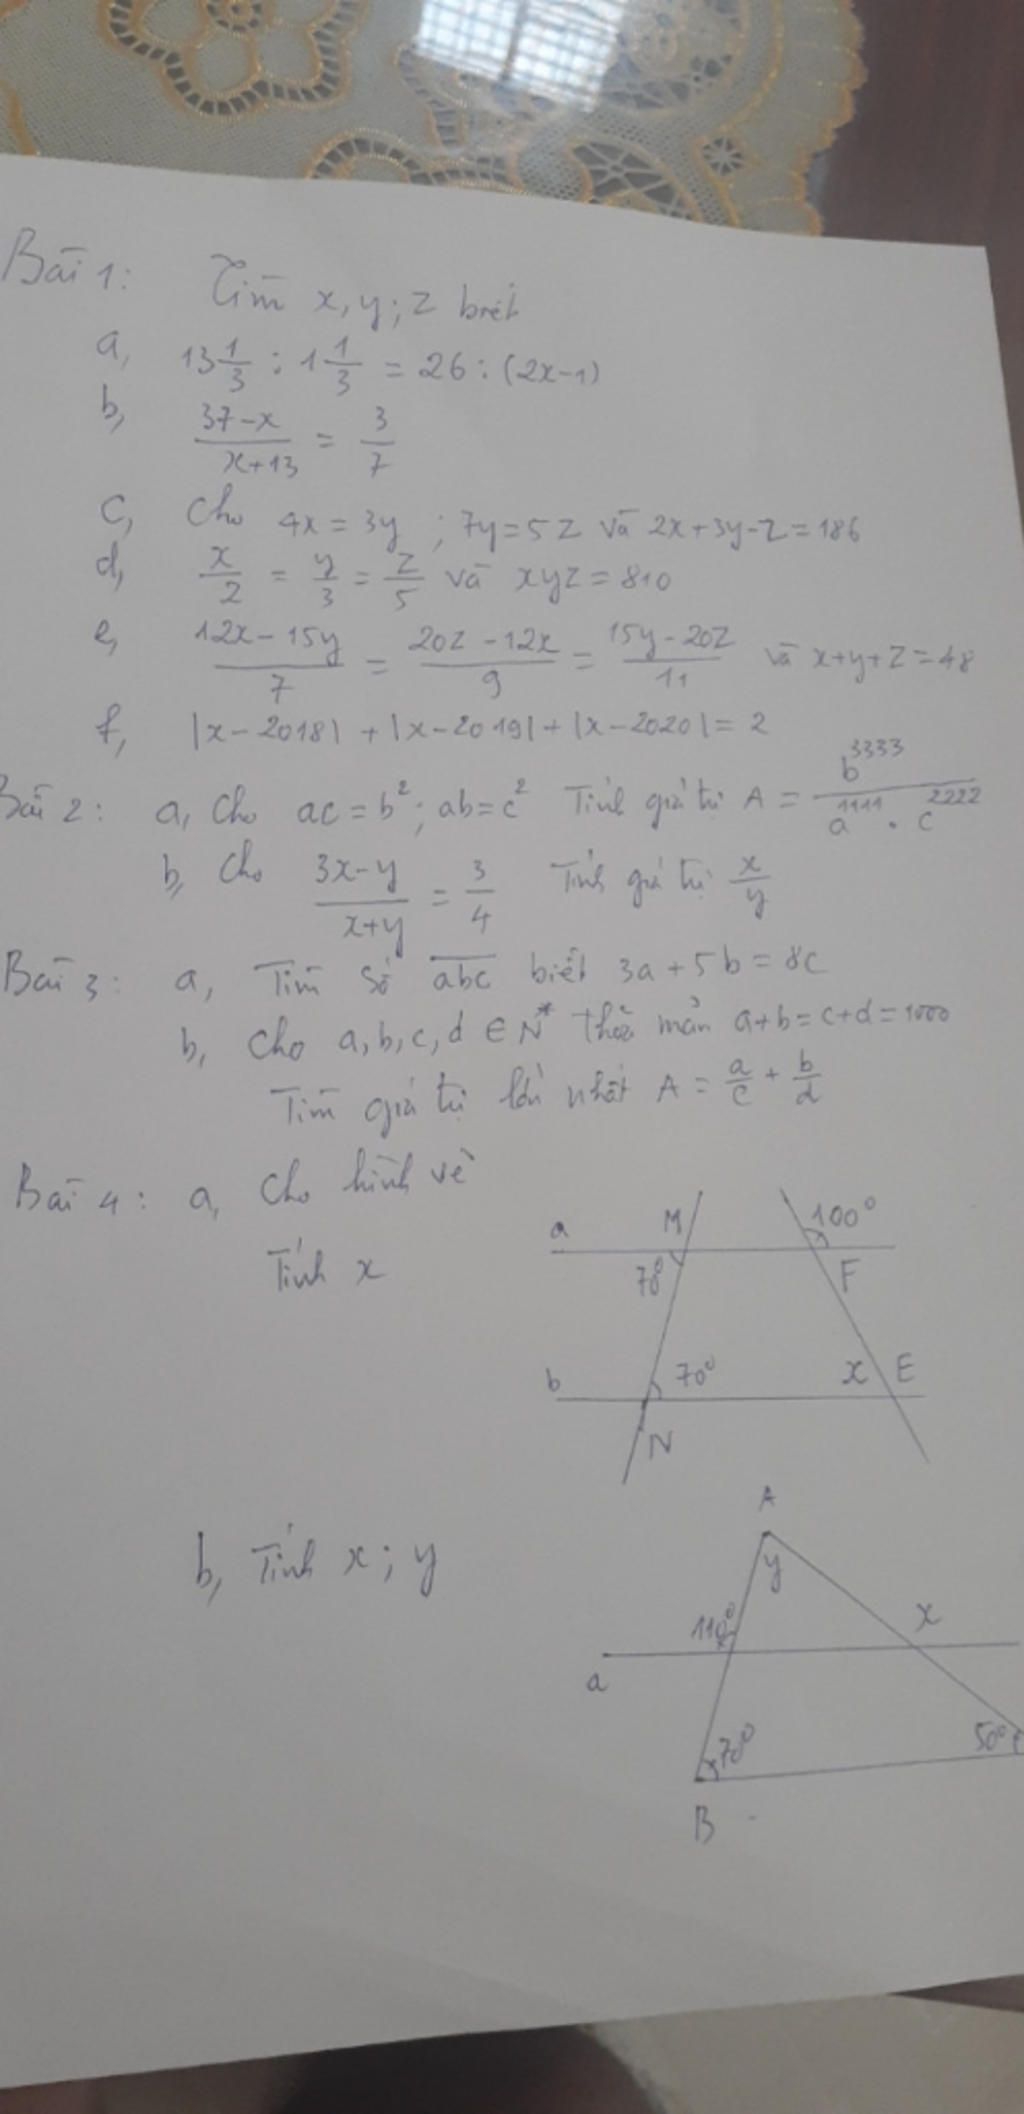 Bài 1: Tìm x, y; z biết
a, 13 1/3 : 1 1/3 = 26 : (2x-1)
b, (37-x)/(x+13) = 3/7
c, Cho 4x = 3y ; 7y = 5z và 2x+3y-z = 186
d, x/2 = y/3 = z/5 và xyz = 810
e, (12x-15y)/7 = (20z-12x)/9 = (15y-20z)/11 và x+y+z = 48
f, |x-2018| + |x-2019| + |x-2020| = 2
Bài 2: a, Cho ac = b²; ab = c² Tính giá trị A = b^3333/(a^1111 . c^2222)
b, Cho (3x-y)/(x+y) = 3/4 Tính giá trị x/y
Bài 3: a, Tìm số abc biết 3a + 5b = 8c
b, Cho a, b, c, d ∈ N* thỏa mản a+b = c+d = 1000
Tìm giá trị lớn nhất A = a/c + b/d
Bài 4: a, Cho hình vẽ
Tính x
a M 100°
70° F
b 70° x E
N
b, Tính x; y
A
y
110° x
a
70° 50°
B